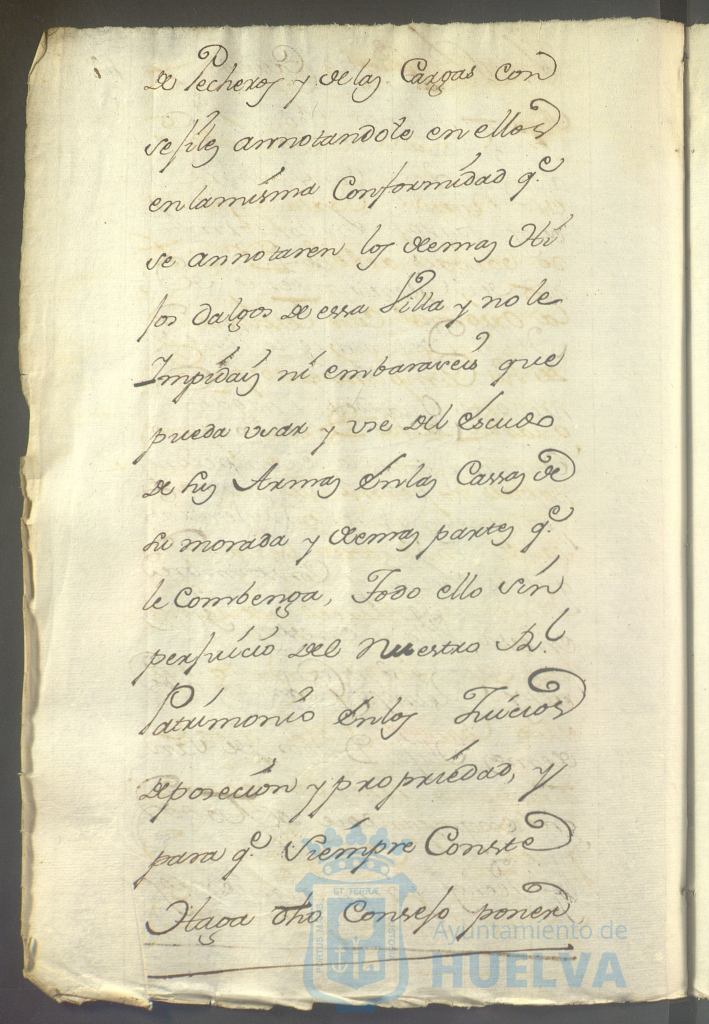 de Pecheros y de las Cargas con
sejiles annotandole en ellos
en la misma Conformidad q.e
se annotaren los demas Hi
jos dalgos de essa Villa y no le
Impidais ni embaraseis que
pueda usar y use del Escudo
de sus Armas en las Cassas de
su morada y demas partes q.e
le Combenga, Todo ello sin
perjuicio del Nuestro R.l
Patrimonio en los Juicios
de posecion y propriedad, y
para q.e Siempre Conste
Haga dho Consejo poner
Ayuntamiento de
HUELVA